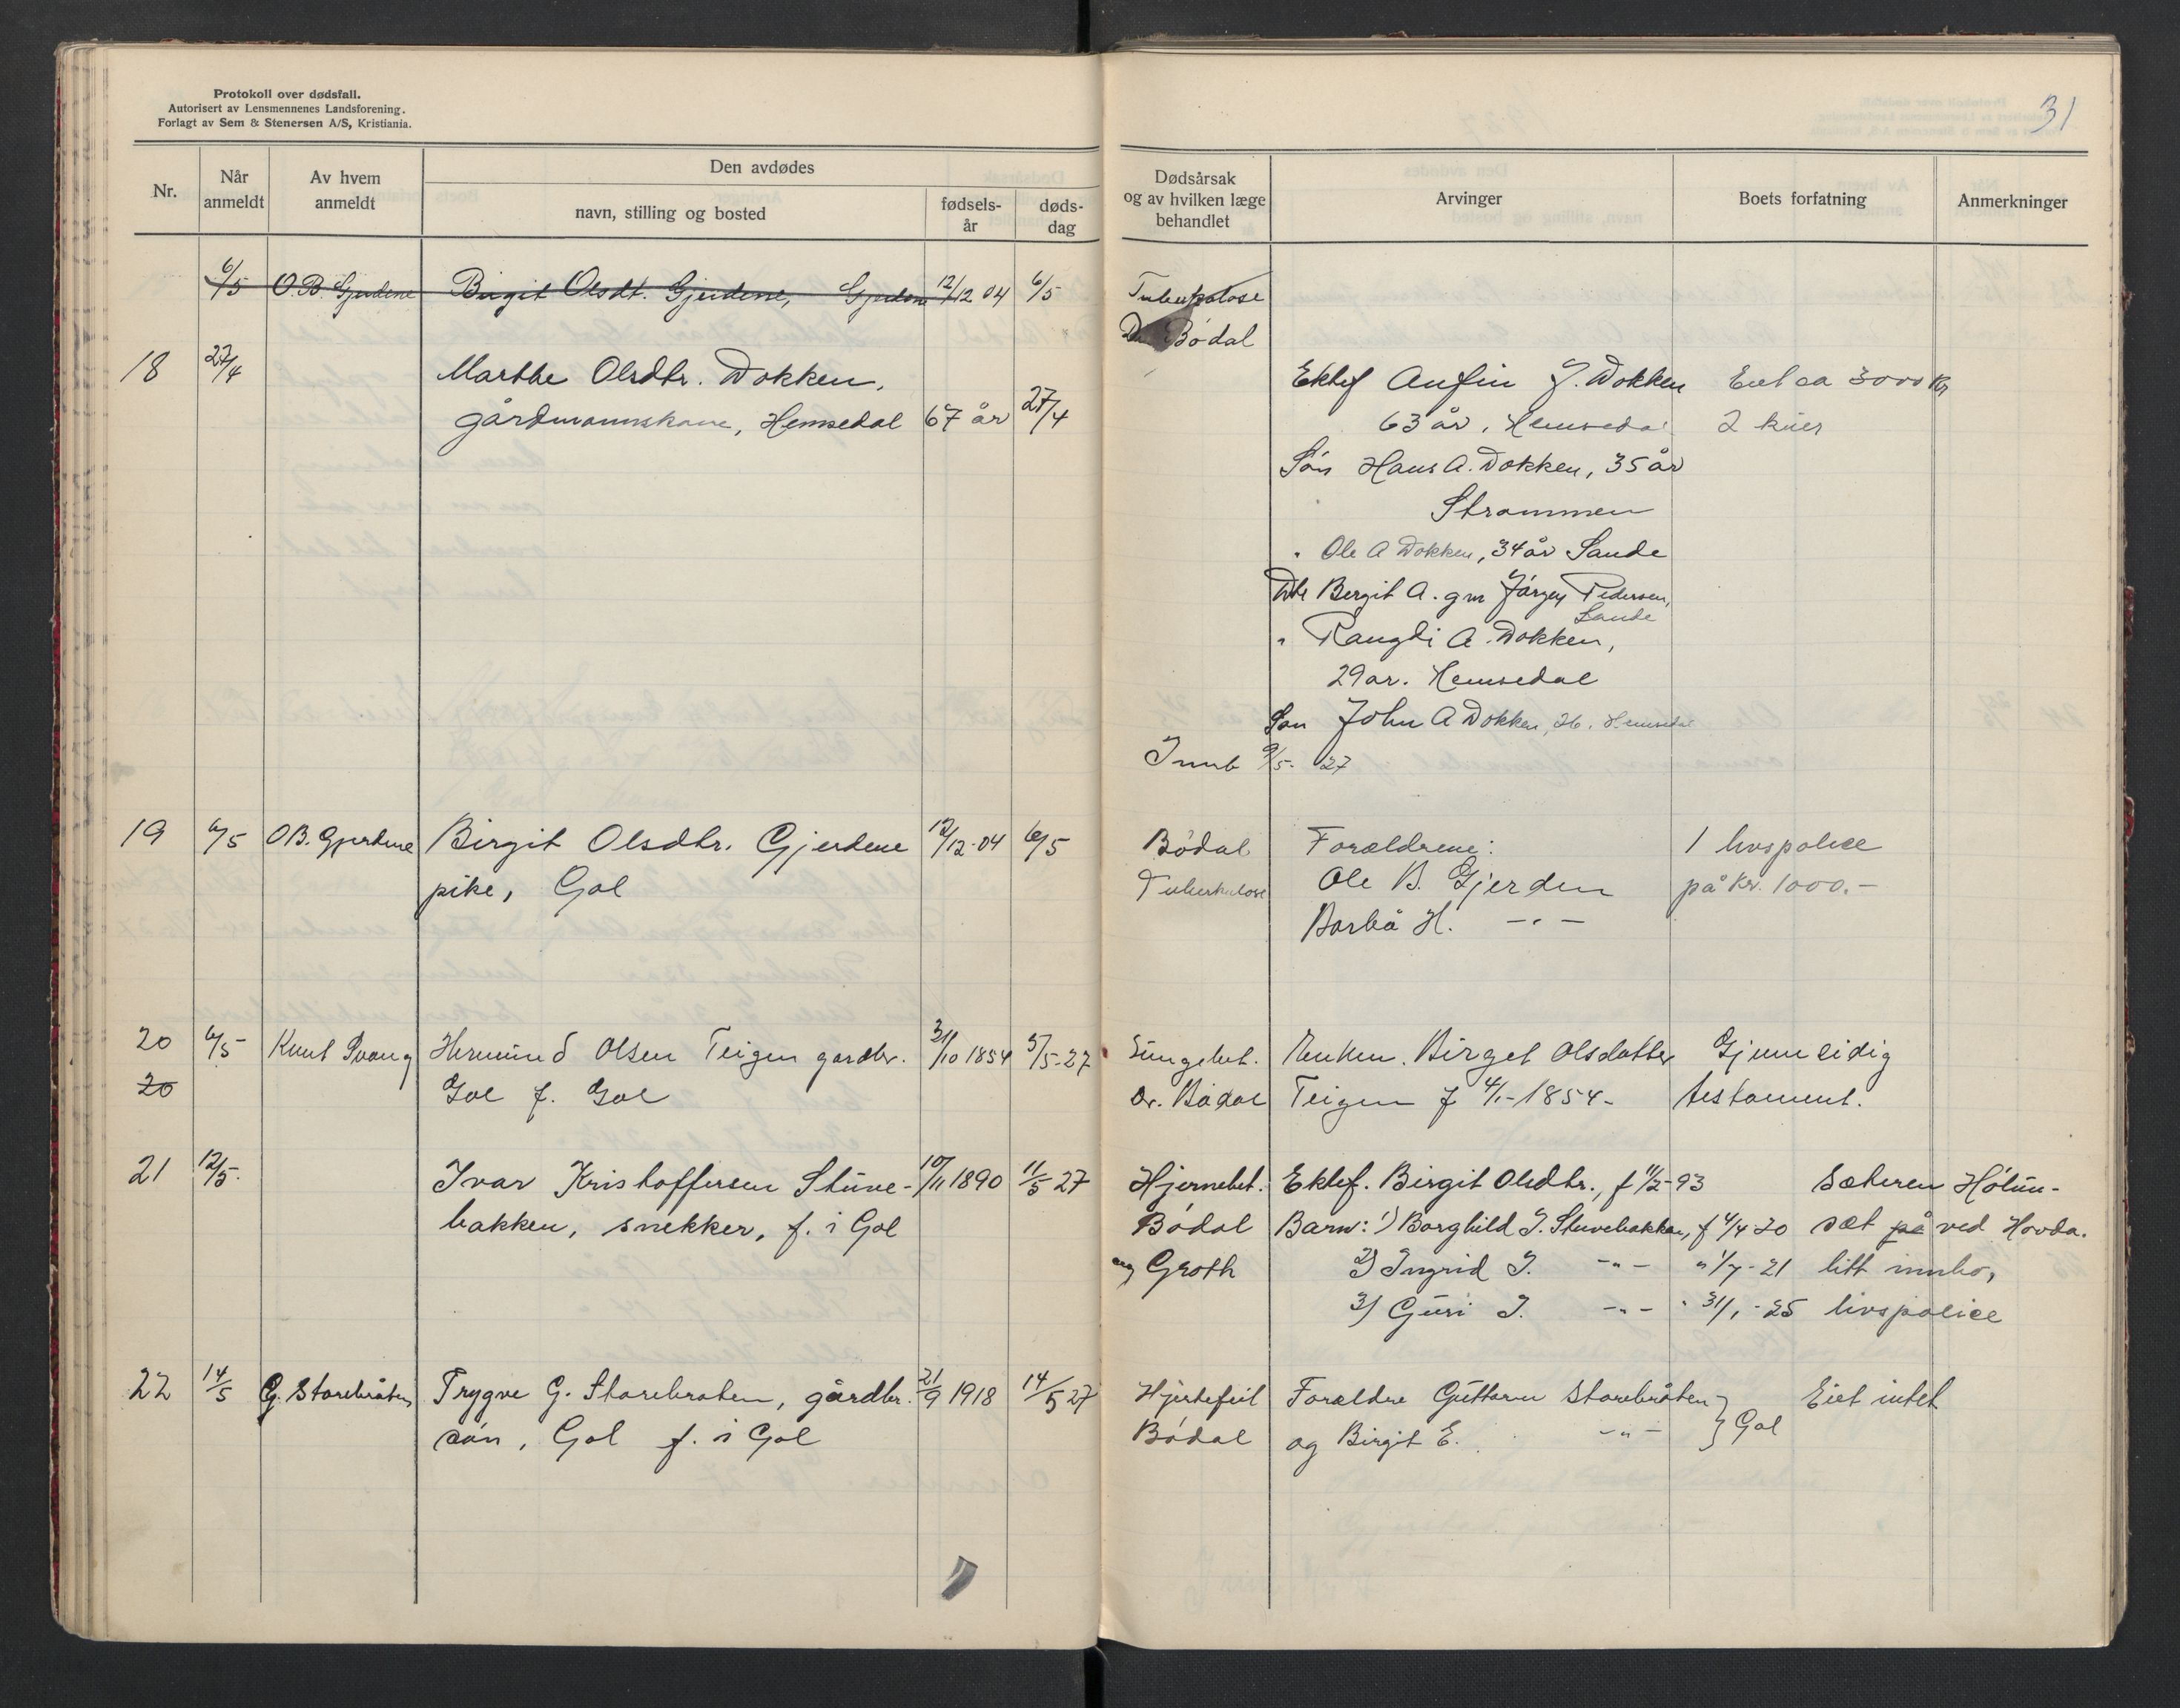 Protokoll over dødsfall.
Autorisert av Lensmennenes Landsforening.
Forlagt av Sem & Stenersen A/S, Kristiania.
31
Nr.
Når anmeldt
Av hvem anmeldt
Den avdødes
navn, stilling og bosted
fødsels-år
døds-dag
Dødsårsak og av hvilken læge behandlet
Arvinger
Boets forfatning
Anmerkninger
6/5 O.B. Gjerdene Birgit Olsdt. Gjerdene, Gjerdene 12/12 04 6/5 Tuberkulose
Dr Bødal
18 27/4 Marthe Olsdtr. Dokken, Ektef Anfin J. Dokken Eiet ca 3000 kr
gårdmannskone, Hemsedal 67 år 27/4 63 år, Hemsedal 2 kuer
Søn Hans A. Dokken, 35 år
Strømmen
" Ole A Dokken, 34 år Sande
Dtr Bergit A. gm Jørgen Pedersen,
Sande
" Rangdi A. Dokken,
29 år. Hemsedal
Søn John A Dokken, 26, Hemsedal
Innb 9/5- 27
19 6/5 OB. Gjerdene Birgit Olsdtr. Gjerdene 12/12-04 6/5 Bødal Forældrene: 1 livspolice
pike, Gol Tuberkulose Ole B. Gjerden på kr. 1000.-
Barbå H. -"-
20 6/5 Knut Svang Hermund Olsen Teigen gardbr. 31/10 1854 5/5-27 Lungebet. Enken. Birget Olsdatter Gjensidig
20 Gol f. Gol Dr. Bødal Teigen f 4/1-1854- testament.
21 12/5- Ivar Kristoffersen Stuve- 10/11 1890 11/5 27 Hjernebet. Ektef. Birgit Olsdtr., f 11/2-93 Sæteren Hølun-
bakken, snekker, f. i Gol Bødal Barn: 1) Borghild I. Stuvebakken, f 4/4-20 sæt på ved Hovda.
og Groth 2) Ingrid I. -"- " 1/7-21 litt innbo,
3) Guri I. -"- " 31/1-25 livspolice
22 14/5 G. Storebråten Trygve G. Storebraten, gårdbr. 21/9 1918 14/5 27 Hjertefeil Forældre Guttorm Storebråten Eiet intet
søn, Gol f. i Gol Bødal og Birgit E. -"- } Gol